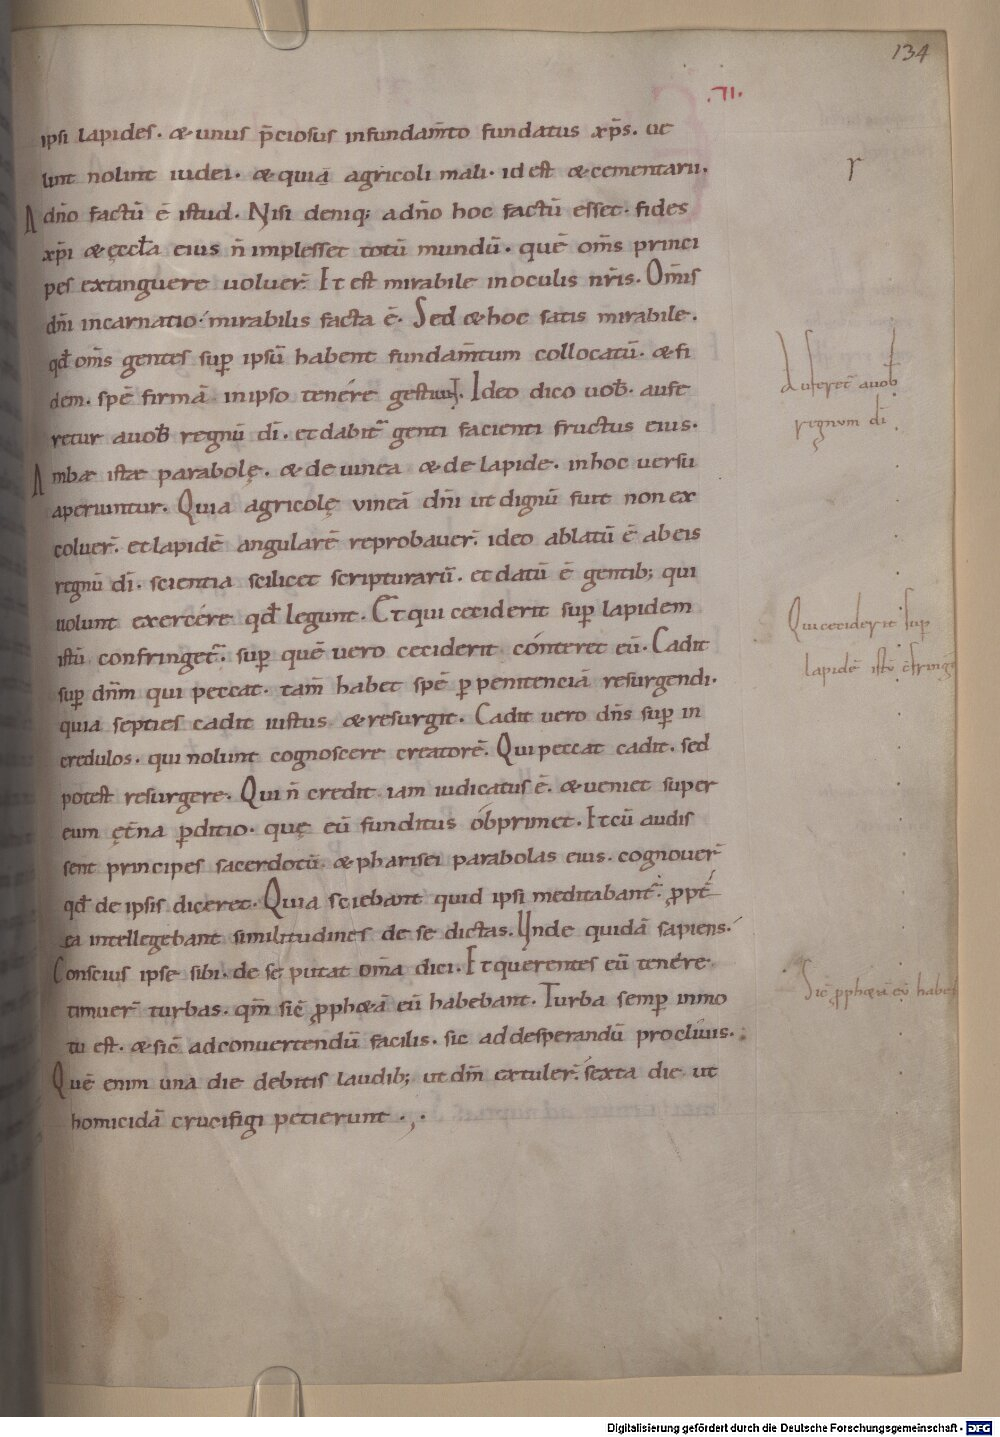 134
.VI.
ipsi lapides. & unus p̄ciosus infundam̄to fundatus xp̄s. ut
lint nolint iudei. & quia agricoli mali. id est & cementarii.
A dn̄o factū ē istud. Nisi deniq; adn̄o hoc factū esset. fides
xp̄i & ęccl̄a eius n̄ implesset totū mundū. quē om̄s princi
pes extinguere voluer̄. Et est mirabile inoculis nr̄is. Om̄is
dn̄i incarnatio. mirabilis facta ē. Sed & hoc satis mirabile.
qd̄ om̄s gentes sup̱ ipsū habent fundam̄tum collocatū. & fi
dem. spē firmā inipso tenére Ideo dico uob̄. aufe
retur auob̄ regnū dī. et dabit̄ genti facienti fructus eius.
Ambæ istæ parabolę. & de uinea & de lapide. inhoc uersu
aperiuntur. Quia agricolę vineā dn̄i ut dignū fuit non ex
coluer̄. et lapidē angularē reprobauer̄. ideo ablatū ē ab eis
regnū dī. scientia scilicet scripturarū. et datū ē gentib; qui
uolunt exercére qd̄ legunt. Et qui ceciderit sup̱ lapidem
istū confringet̄. sup̱ quē vero ceciderit cónteret eū. Cadit
sup̱ dn̄m qui peccat. tam̄ habet spē p̱ penitenciā resurgendi.
quia septies cadit iustus & resurgit. Cadit vero dn̄s sup̱ in
credulos. qui nolunt cognoscere creatorē. Qui peccat cadit. sed
potest resurgere. Qui n̄ credit iam iudicatus ē. & veniet super
eum ęt̄na p̱ditio. quę eū funditus óbprimet. Et cū audis
sent principes sacerdotū & pharisei parabolas eius. cognouer̄
qd̄ de ipsis diceret. Quia sciebant quid ipsi meditabant̄. p̱pt̄
ea intellegebant similitudines de se dictas. Unde quidā sapiens.
Conscius ipse sibi. de se putat om̄a dici. Et querentes eū tenére
timuer̄ turbas. qm̄ sic̄ p̱ph&ā eū habebant. Turba semp̱ inmo
tu est. & sic̄ adconuertendū facilis. sic addesperandū procliuis.
Quē enim una die debitis laudib; ut dn̄m extuler̄. sexta die ut
homicidā crucifigi petierunt.
r
Auferet̄ auob̄
regnum dī.
Qui ceciderit sup̱
lapidē istū c̄fring
Sic̄ p̱ph&ā eū habe
Digitalisierung gefördert durch die Deutsche Forschungsgemeinschaft - DFG